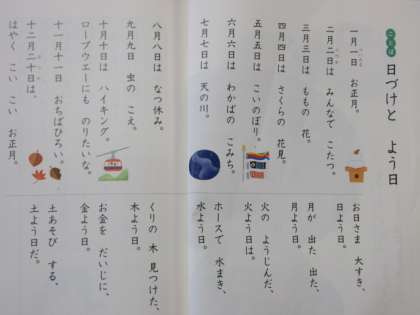 ことば
日づけと よう日
一月一日 お正月。
二月二日は みんなで こたつ。
三月三日は ももの 花。
四月四日は さくらの 花見。
五月五日は こいのぼり。
六月六日は わかばの こみち。
七月七日は 天の川。
八月八日は なつ休み。
九月九日 虫の こえ。
十月十日は ハイキング。
ロープウエーにも のりたいな。
十一月十一日 おちばひろい。
十二月二十日は、
はやく こい こい お正月。
お日さま 大すき、
日よう日。
月が 出た 出た、
月よう日。
火の ようじんだ、
火よう日は。
ホースで 水まき、
水よう日。
くりの 木 見つけた、
木よう日。
お金を だいじに、
金よう日。
土あそび する、
土よう日だ。